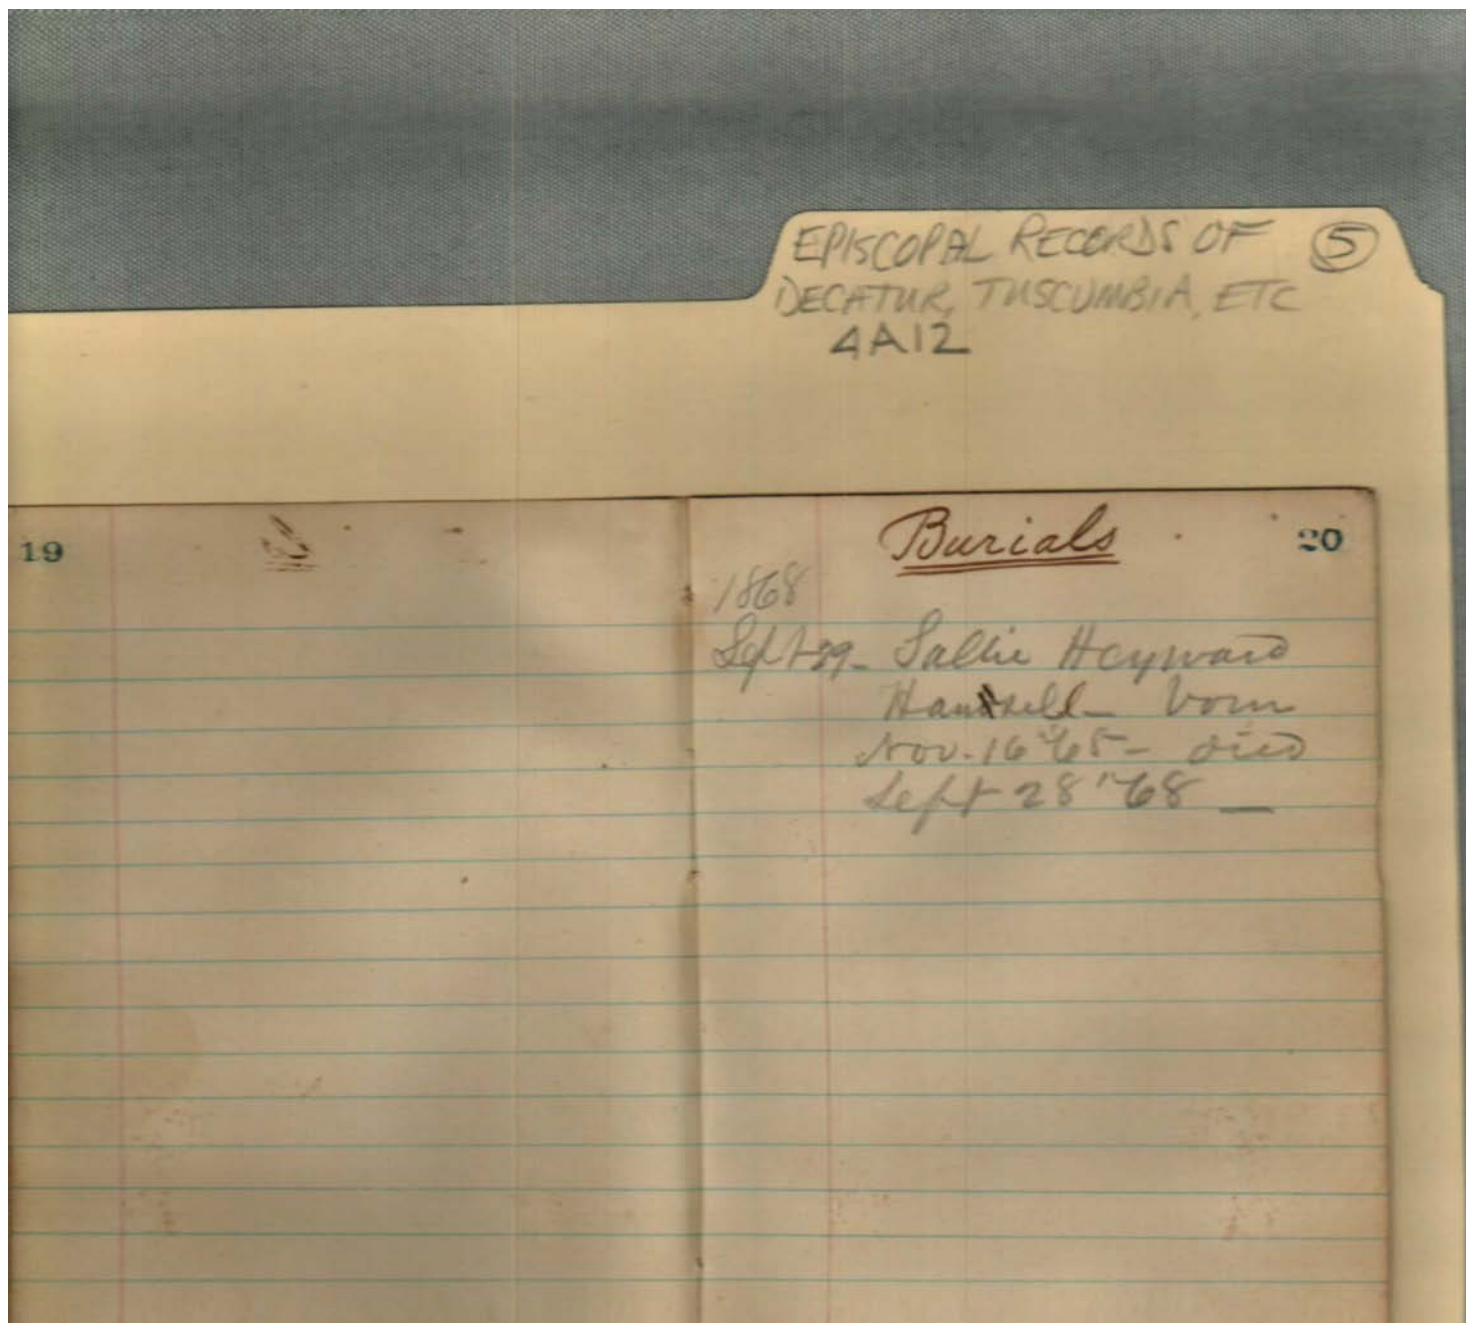 EPISCOPAL RECORDS OF 5
DECATUR, TUSCUMBIA, ETC
4A12
19
Burials 20
1868
Sept 29- Sallie Heyward
Hansell- born
Nov. 16 '65- died
Sept 28 '68 —